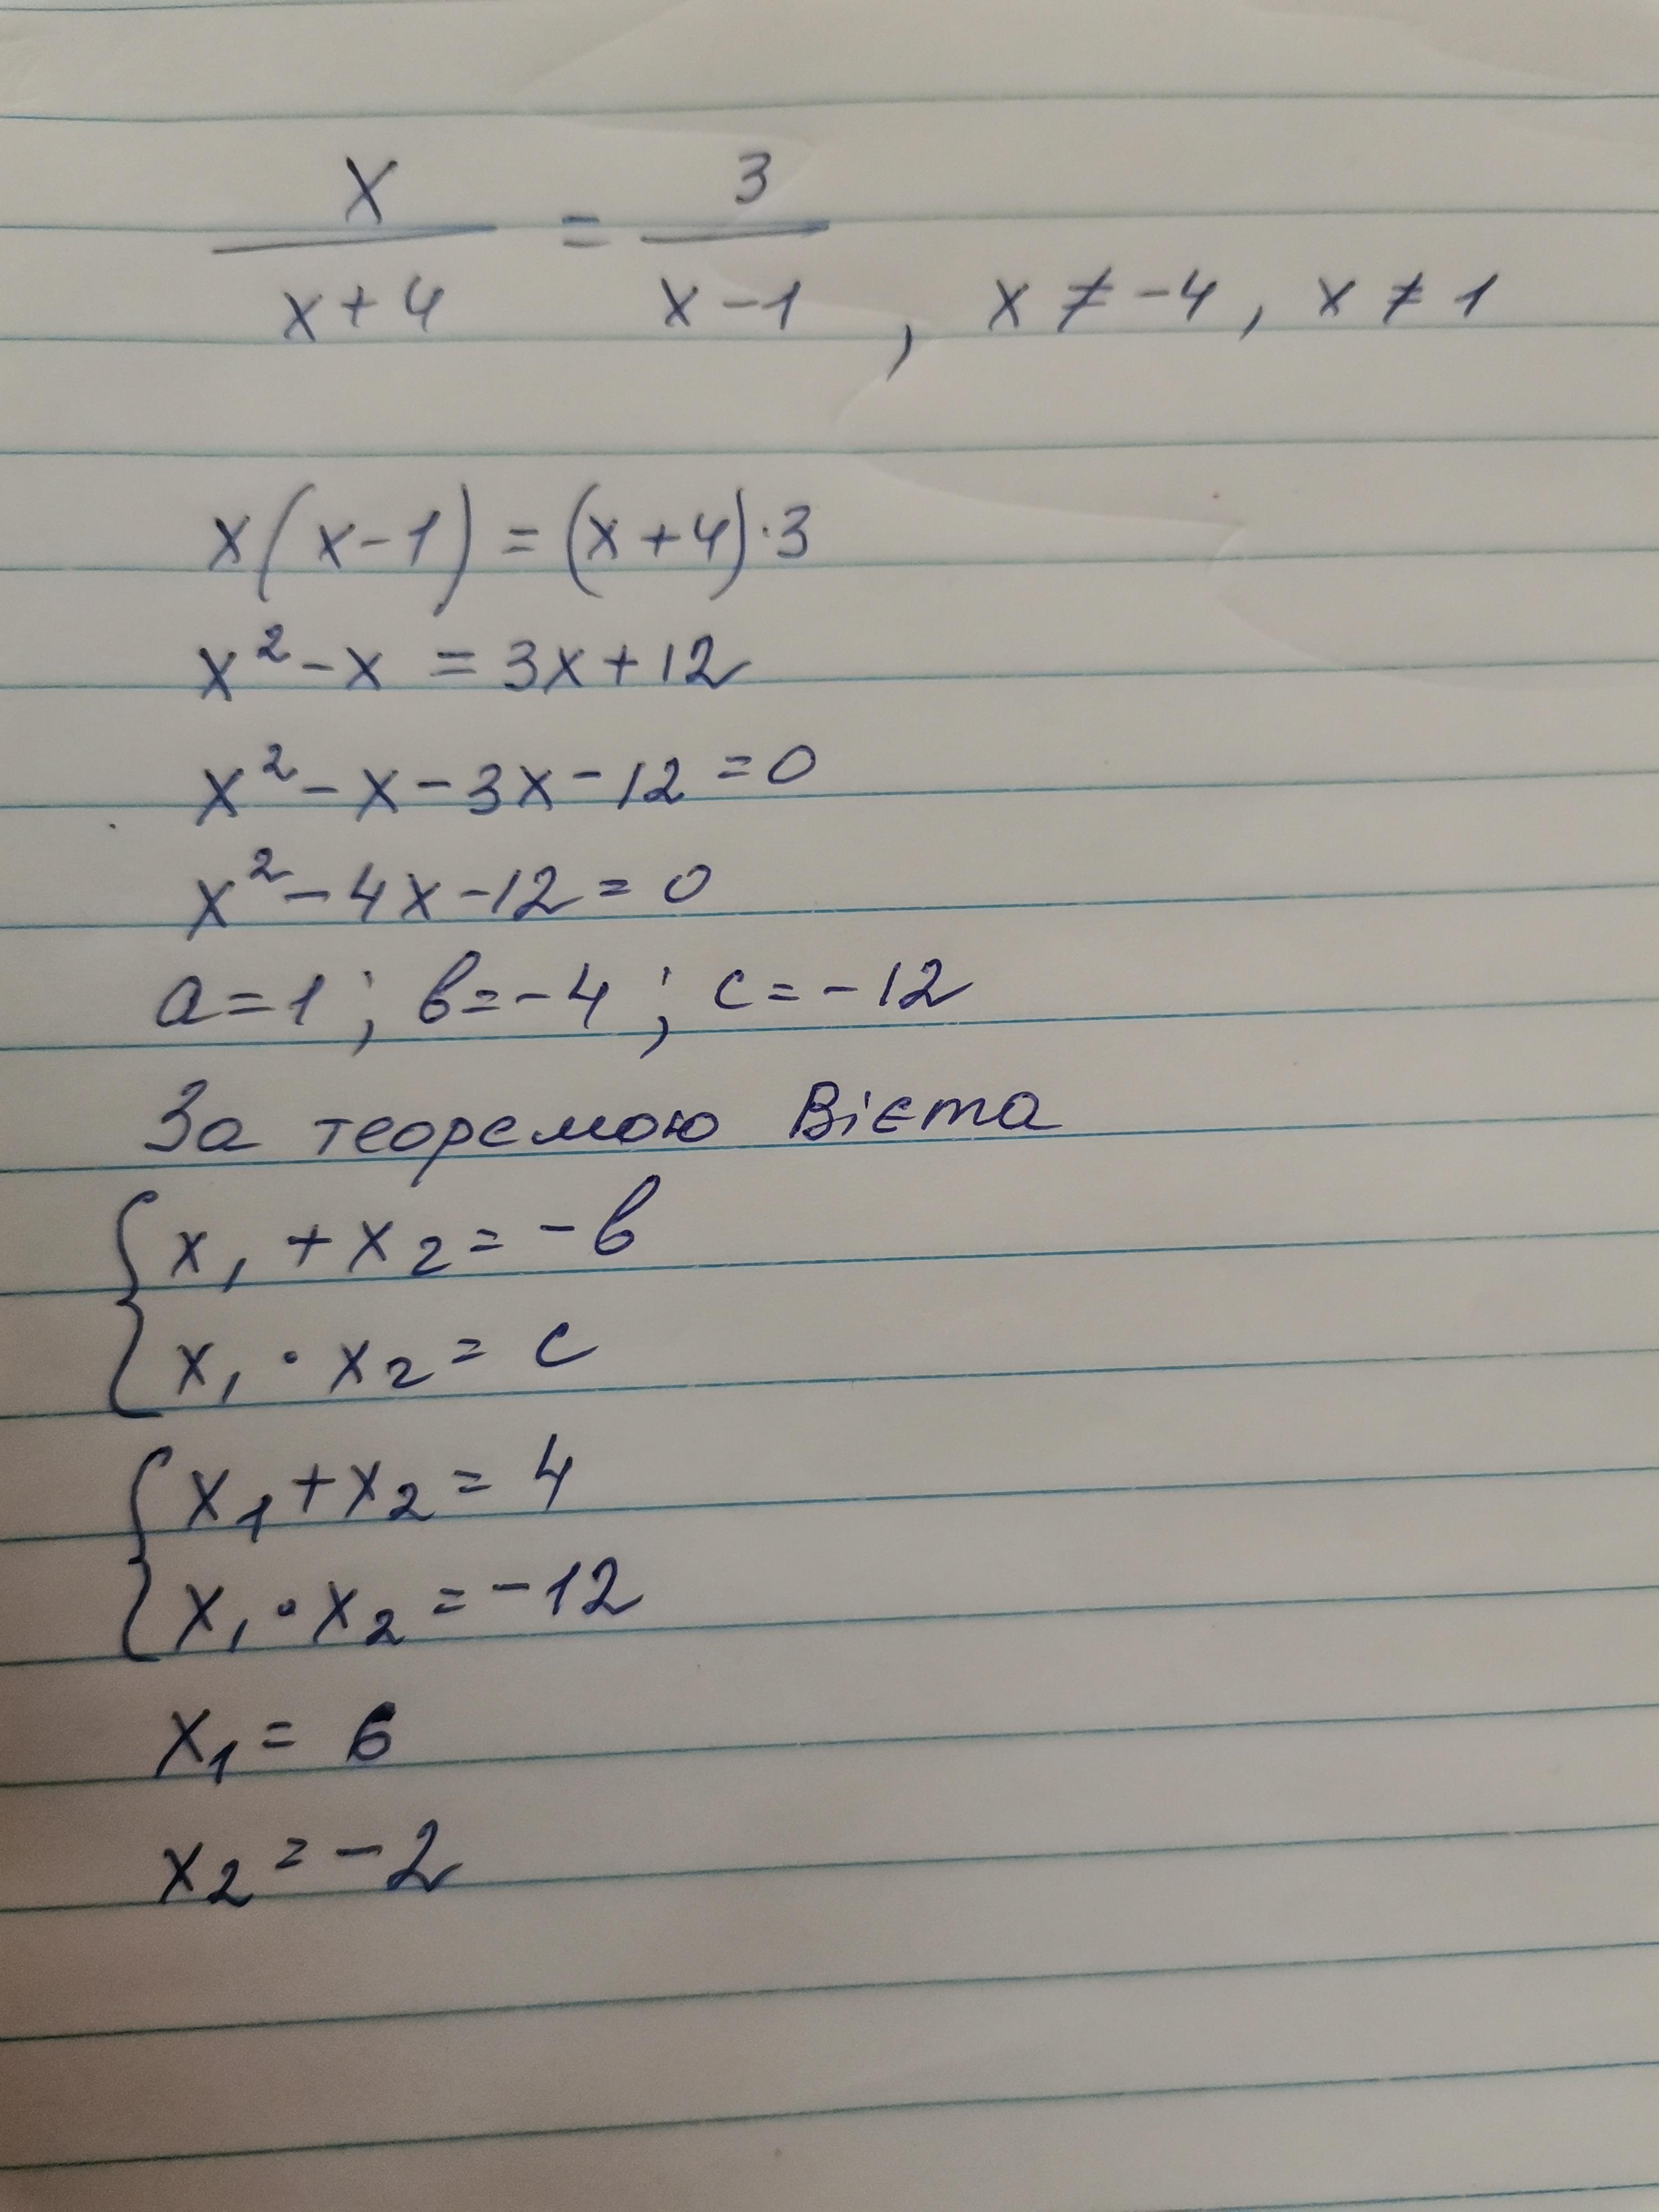 x/(x+4) = 3/(x-1), x ≠ -4, x ≠ 1
x(x-1) = (x+4)·3
x² - x = 3x + 12
x² - x - 3x - 12 = 0
x² - 4x - 12 = 0
a = 1; в = -4; с = -12
За теоремою Вієта
{ x₁ + x₂ = -в
x₁ · x₂ = с
{ x₁ + x₂ = 4
x₁ · x₂ = -12
x₁ = 6
x₂ = -2